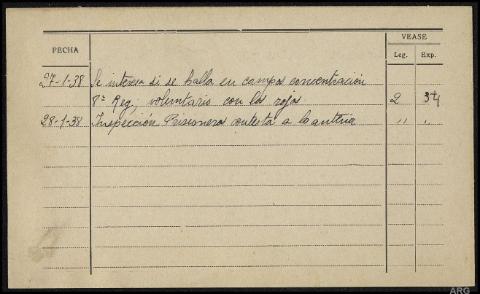 VEASE
FECHA
Leg. Exp.
27-1-38 Se interesa si se halla en campos concentración
8ª Reg; voluntario con los rojos 2
28-1-38 Inspección Prisioneros contesta a la anterior " "
ARG